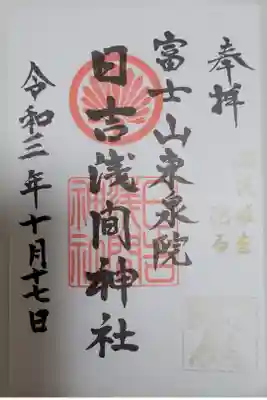 奉拝
富士山東泉院
日吉浅間神社
令和三年十月十七日